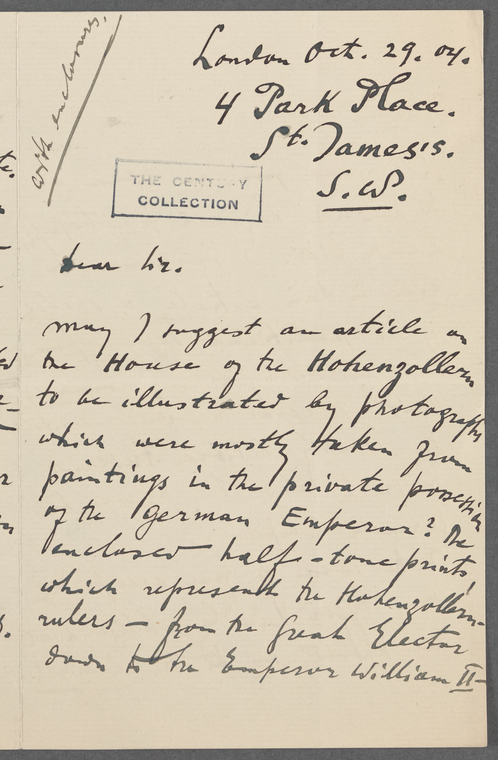 with enclosures.
London Oct. 29. 04.
4 Park Place.
St. James's.
S.W.
THE CENTURY
COLLECTION
Dear Sir.
May I suggest an article on
the House of the Hohenzollern
to be illustrated by photographs
which were mostly taken from
paintings in the private possession
of the German Emperor? The
enclosed half-tone prints,
which represent the Hohenzollern-
rulers – from the Great Elector
down to the Emperor William II –